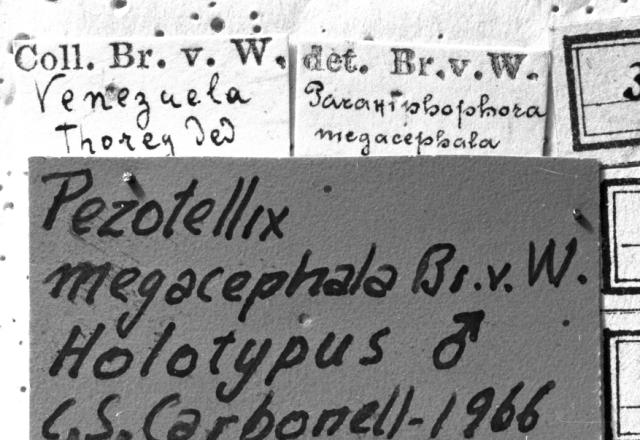 Coll. Br. v. W.
Venezuela
Thorey Ded
det. Br. v. W.
Paraxiphophora
megacephala
3
Pezotellix
megacephala Br. v. W.
Holotypus ♂
C.S. Carbonell-1966